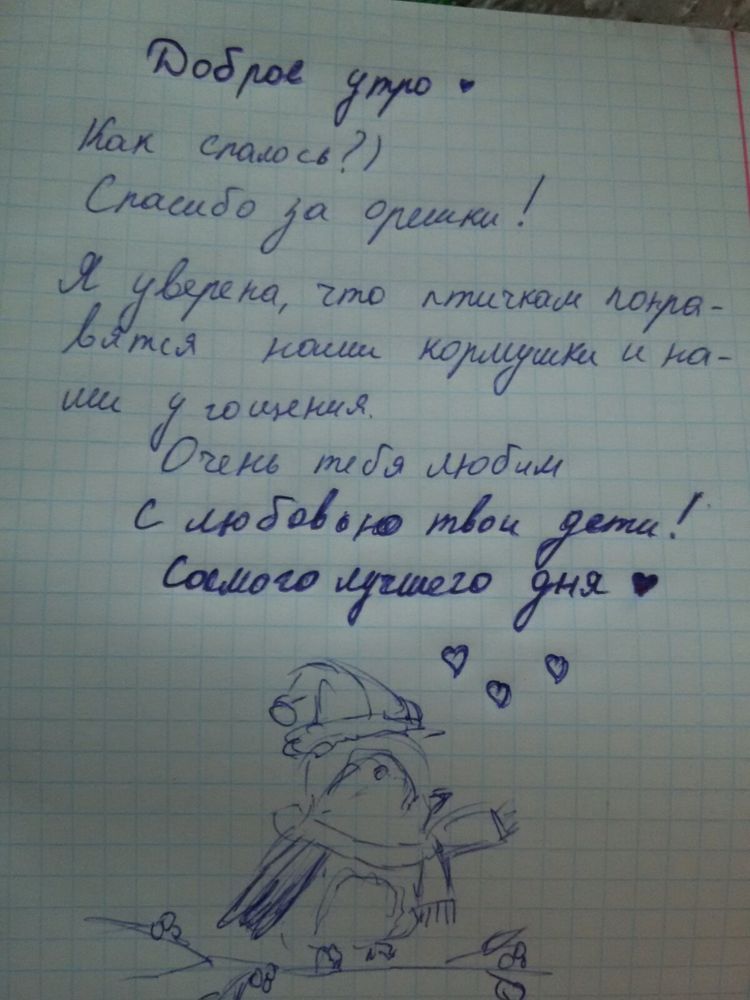 Доброе утро ♥
Как спалось?)
Спасибо за орешки!
Я уверена, что птичкам понра-
вятся наши кормушки и на-
ши угощения.
Очень тебя любим
С любовью твои дети!
Самого лучшего дня ♥